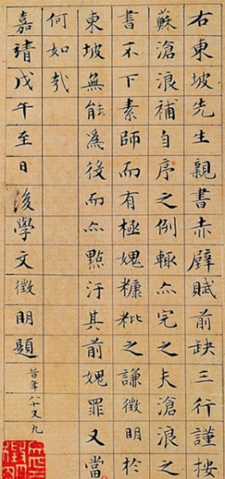 右東坡先生親書赤壁賦前缺三行謹按
蘇滄浪補自序之例輒亦完之夫滄浪之
書不下素師而有極媿糠粃之謙徵明於
東坡無能爲後而亦點汙其前媿罪又當
何如哉
嘉靖戊午至日後學文徵明題 旹年八十又九